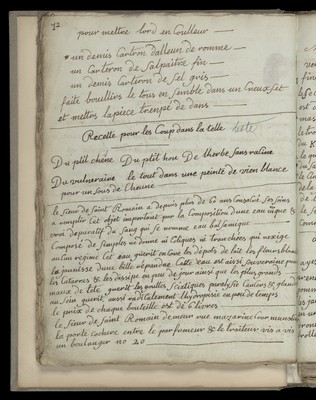 72
pour mettre lord en Coulleur
un demis Carteron dalleun de romme
un Carteron de Salpaitre fin
un demis Carteron de Sel gris
faite bouillire le tous en semble dans un Creuset
et mettre la piece trempé de dans
Recette pour les Coup dans la telle teste
Du ptit chéne Du ptit hou De lherbe sans raline
Du vulneraire le tout dans une peinte de vien blance
pour un sous de Cheune
le sieur de Saint Romain a depuis plus de 60 ans Consacré ses soins
a remplir Cet objet important par la Composition dune eau unique &
vrai depuratif du Sang qui se nomme eau balsamique
Composé de simples ni donne ni Coliques ni tranchées qui nexige
aucun regime Cet eau guerit encore les depots de lait les fleurs blanches
la jaunisse dune bille repandue Cette eau est aussi souveraine pour
les Catarres & les dissipe en peu de jour ainsi que les plus grands
maux de tete guerit les rouilles Sciatiques paralysie Cancers & glandes
au sein guerit aussi radicalement lhydropisie en peu de temps
le prix de chaque bouteille est de 6 livres
le sieur de Saint Romain demeure rue mazarine
la porte cochere entre le parfumeur & le traiteur vis a vis
un boulanger no 20